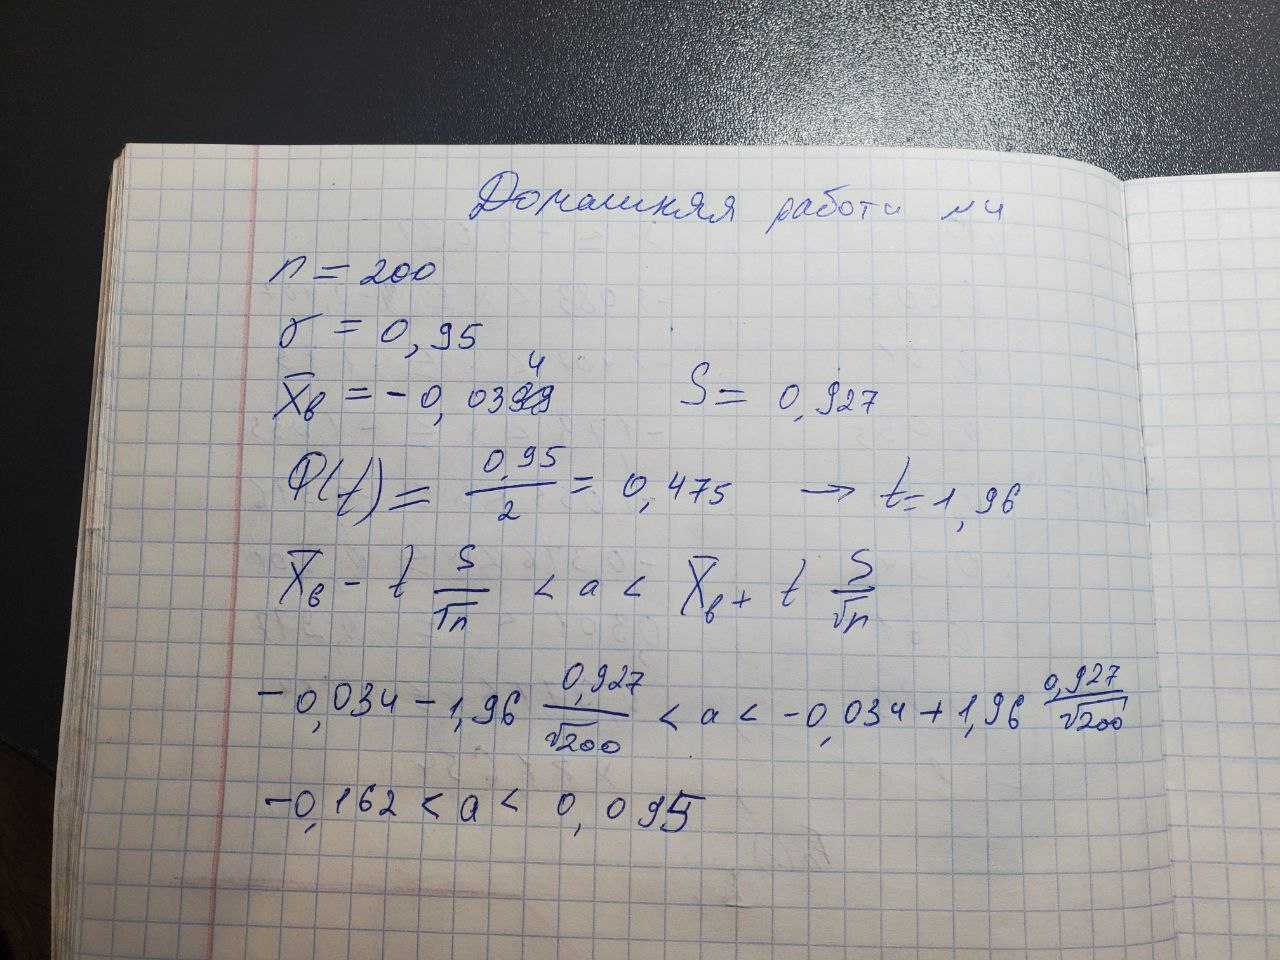 Домашняя работа №4
n = 200
γ = 0,95
x̄в = -0,034 S = 0,927
Φ(t) = 0,95/2 = 0,475 → t = 1,96
x̄в - t S/√n < a < x̄в + t S/√n
-0,034 - 1,96 0,927/√200 < a < -0,034 + 1,96 0,927/√200
-0,162 < a < 0,095